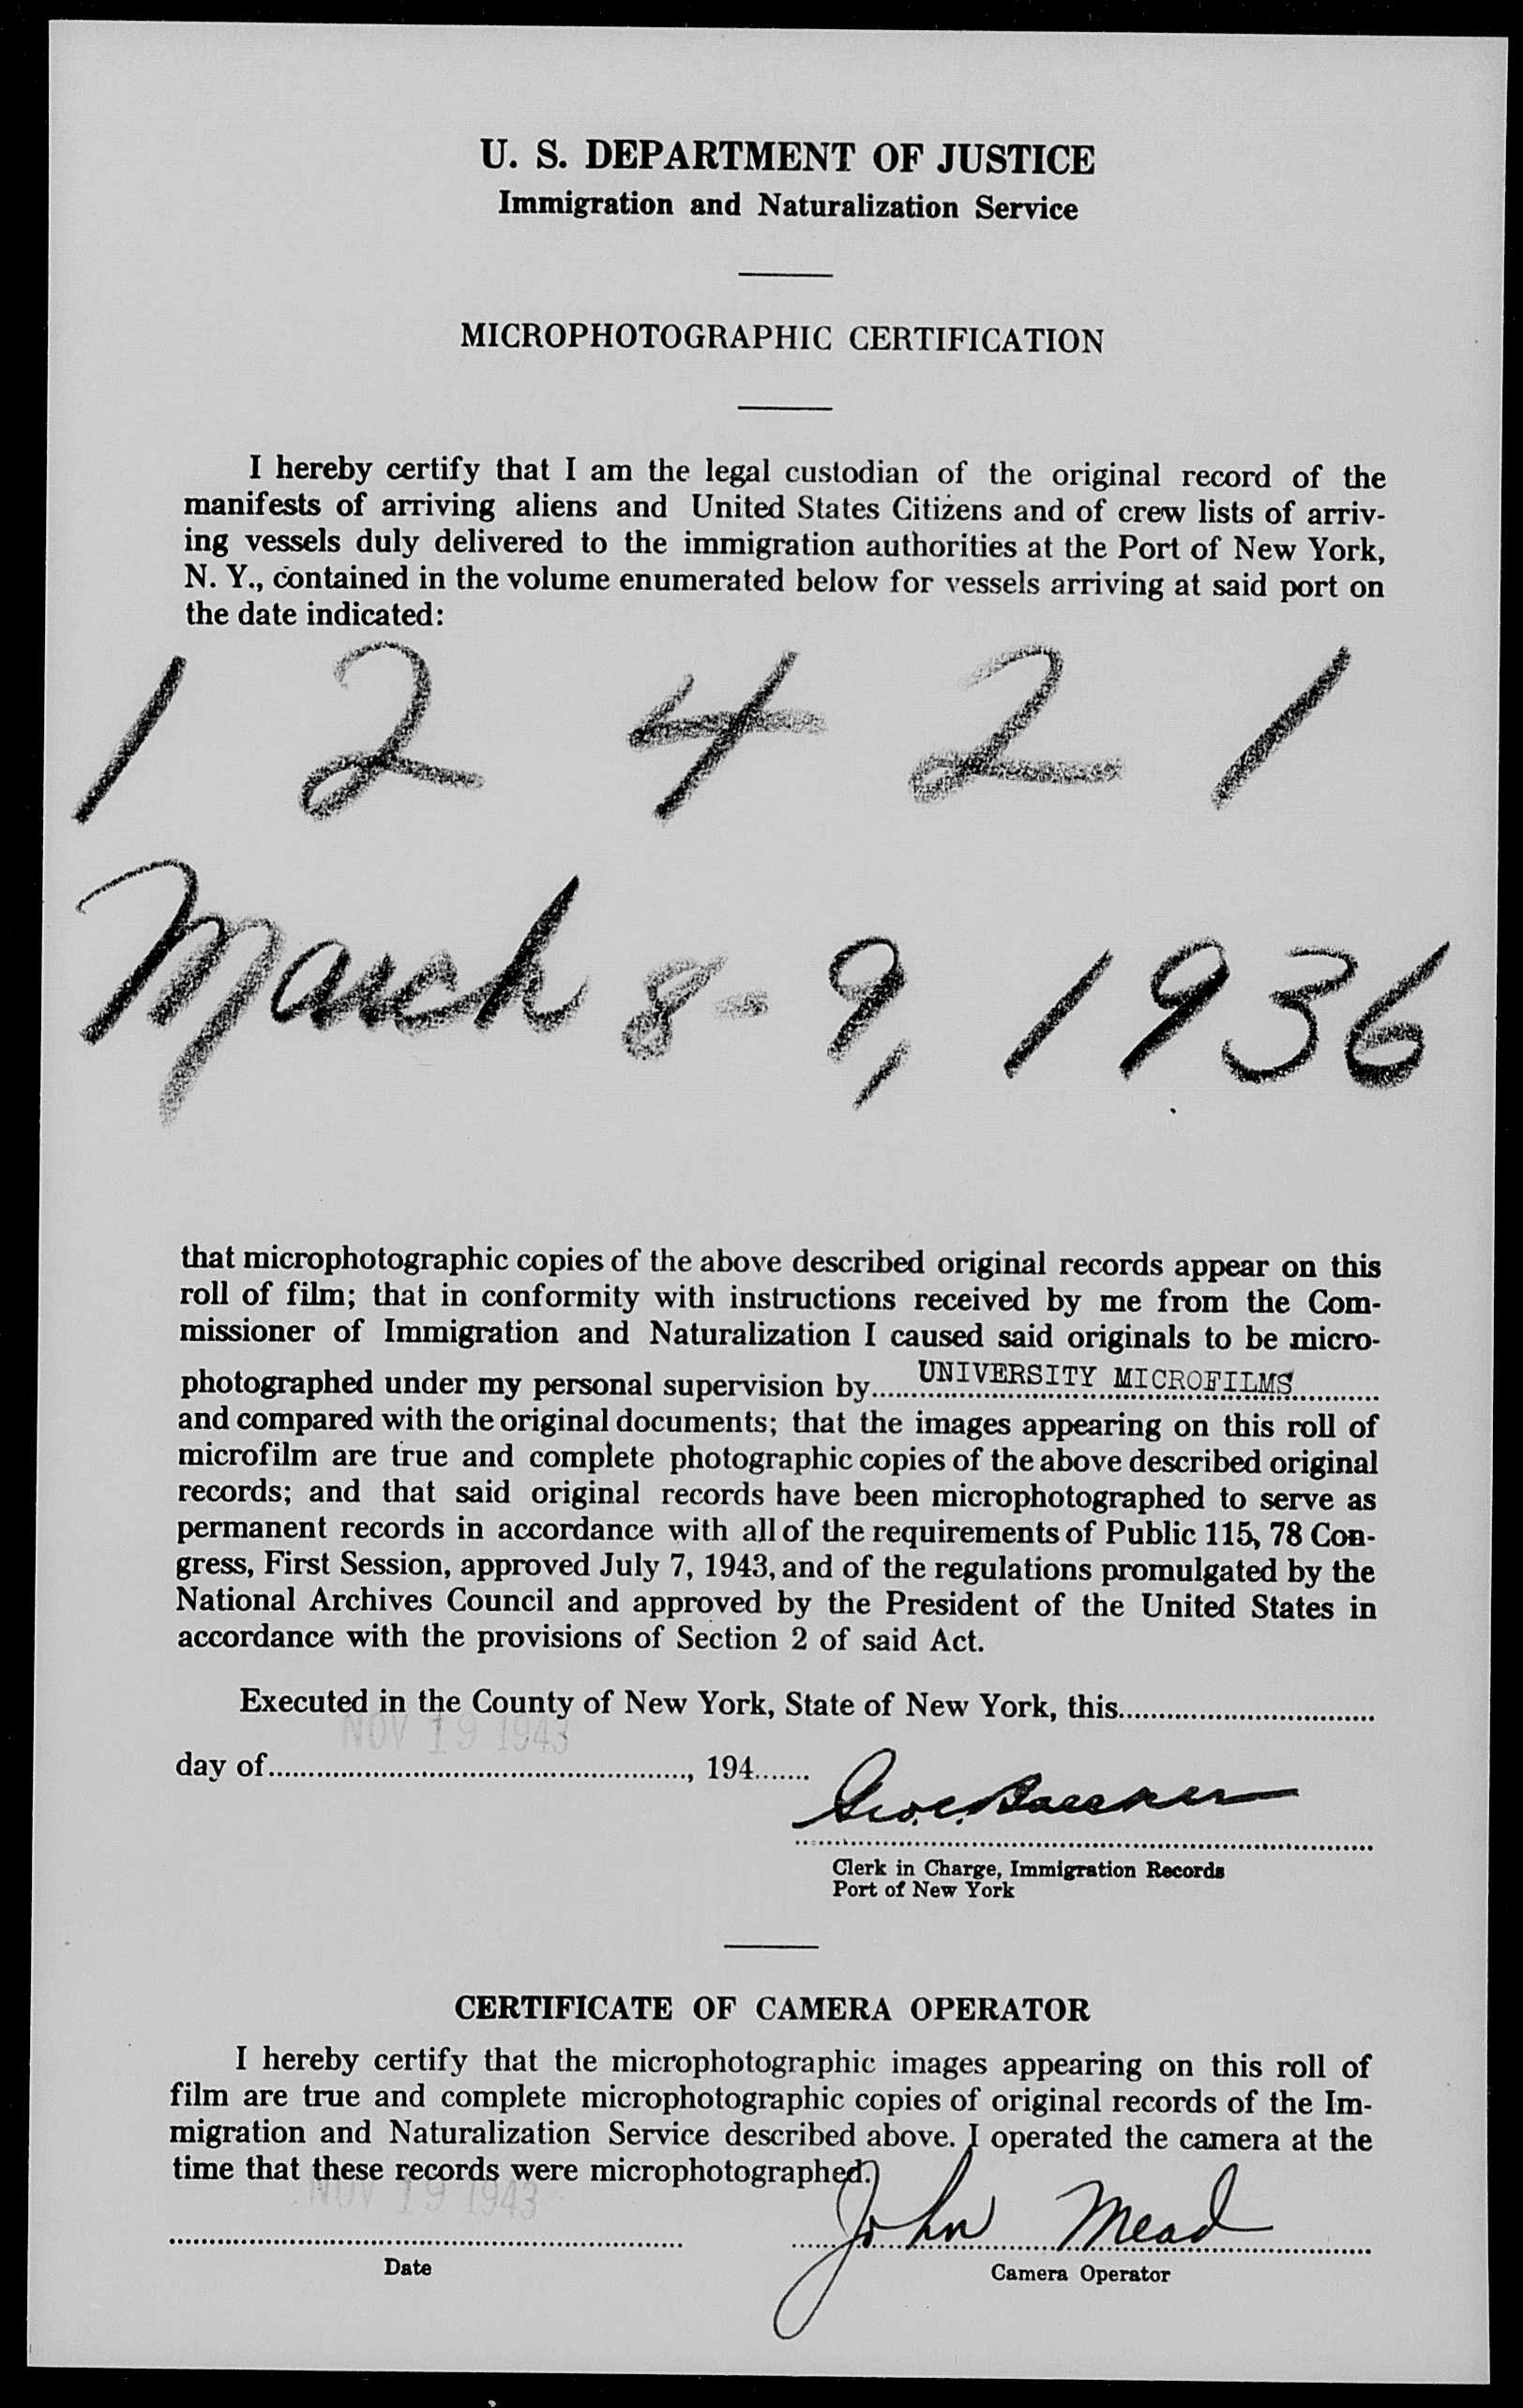 U. S. DEPARTMENT OF JUSTICE
Immigration and Naturalization Service
MICROPHOTOGRAPHIC CERTIFICATION
I hereby certify that I am the legal custodian of the original record of the
manifests of arriving aliens and United States Citizens and of crew lists of arriv-
ing vessels duly delivered to the immigration authorities at the Port of New York,
N. Y., contained in the volume enumerated below for vessels arriving at said port on
the date indicated:
1 2 4 2 1
March 8-9, 1936
that microphotographic copies of the above described original records appear on this
roll of film; that in conformity with instructions received by me from the Com-
missioner of Immigration and Naturalization I caused said originals to be micro-
photographed under my personal supervision by UNIVERSITY MICROFILMS
and compared with the original documents; that the images appearing on this roll of
microfilm are true and complete photographic copies of the above described original
records; and that said original records have been microphotographed to serve as
permanent records in accordance with all of the requirements of Public 115, 78 Con-
gress, First Session, approved July 7, 1943, and of the regulations promulgated by the
National Archives Council and approved by the President of the United States in
accordance with the provisions of Section 2 of said Act.
Executed in the County of New York, State of New York, this
NOV 19 1943
day of , 194
Clerk in Charge, Immigration Records
Port of New York
CERTIFICATE OF CAMERA OPERATOR
I hereby certify that the microphotographic images appearing on this roll of
film are true and complete microphotographic copies of original records of the Im-
migration and Naturalization Service described above. I operated the camera at the
time that these records were microphotographed.
NOV 19 1943
John Mead
Date
Camera Operator